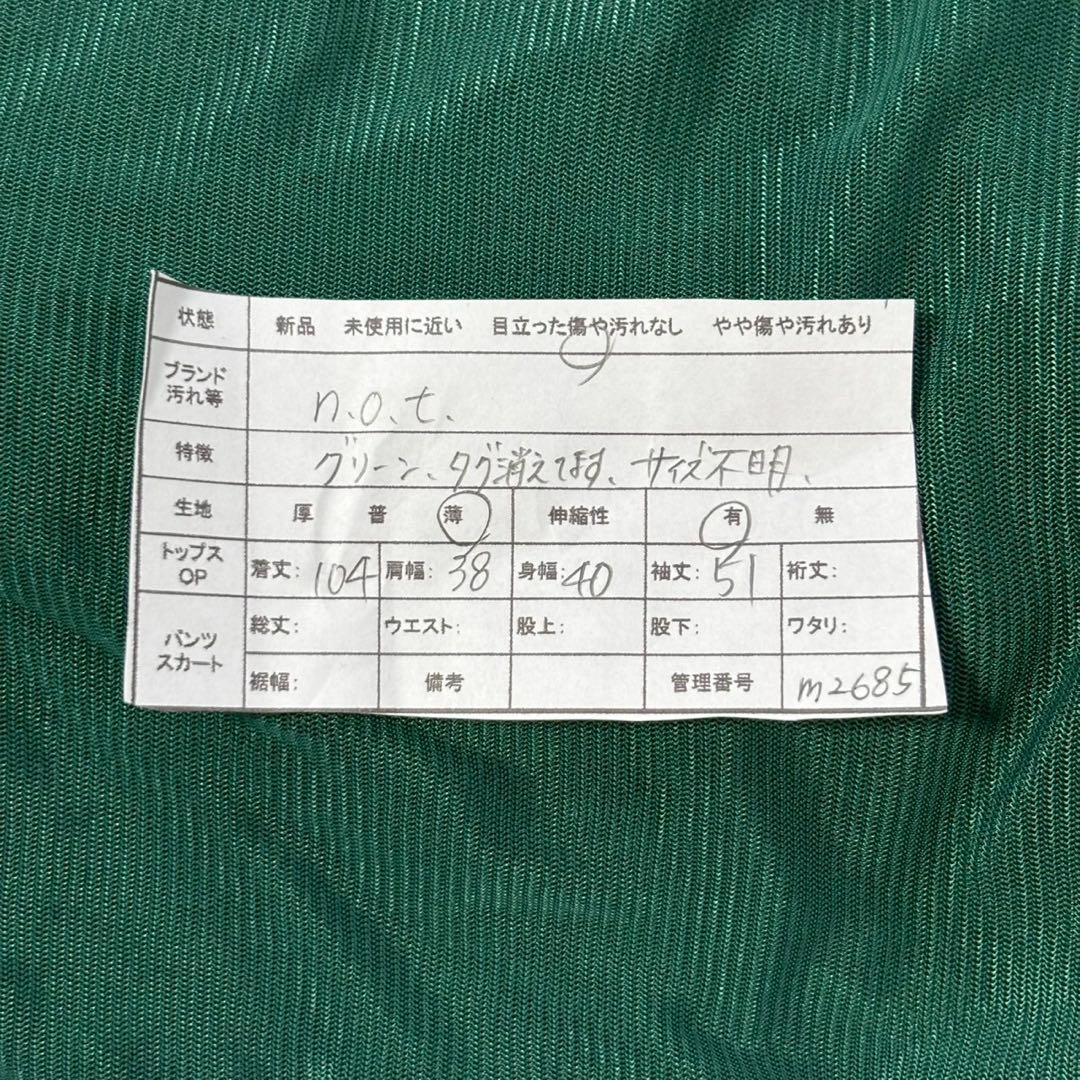 状態 新品 未使用に近い 目立った傷や汚れなし やや傷や汚れあり
ブランド
汚れ等
n.o.t.
特徴 グリーン、タグ消えてます、サイズ不明、
生地 厚 普 薄 伸縮性 有 無
トップス
OP
着丈: 104 肩幅: 38 身幅: 40 袖丈: 51 裄丈:
パンツ
スカート
総丈: ウエスト: 股上: 股下: ワタリ:
裾幅: 備考 管理番号 m2685